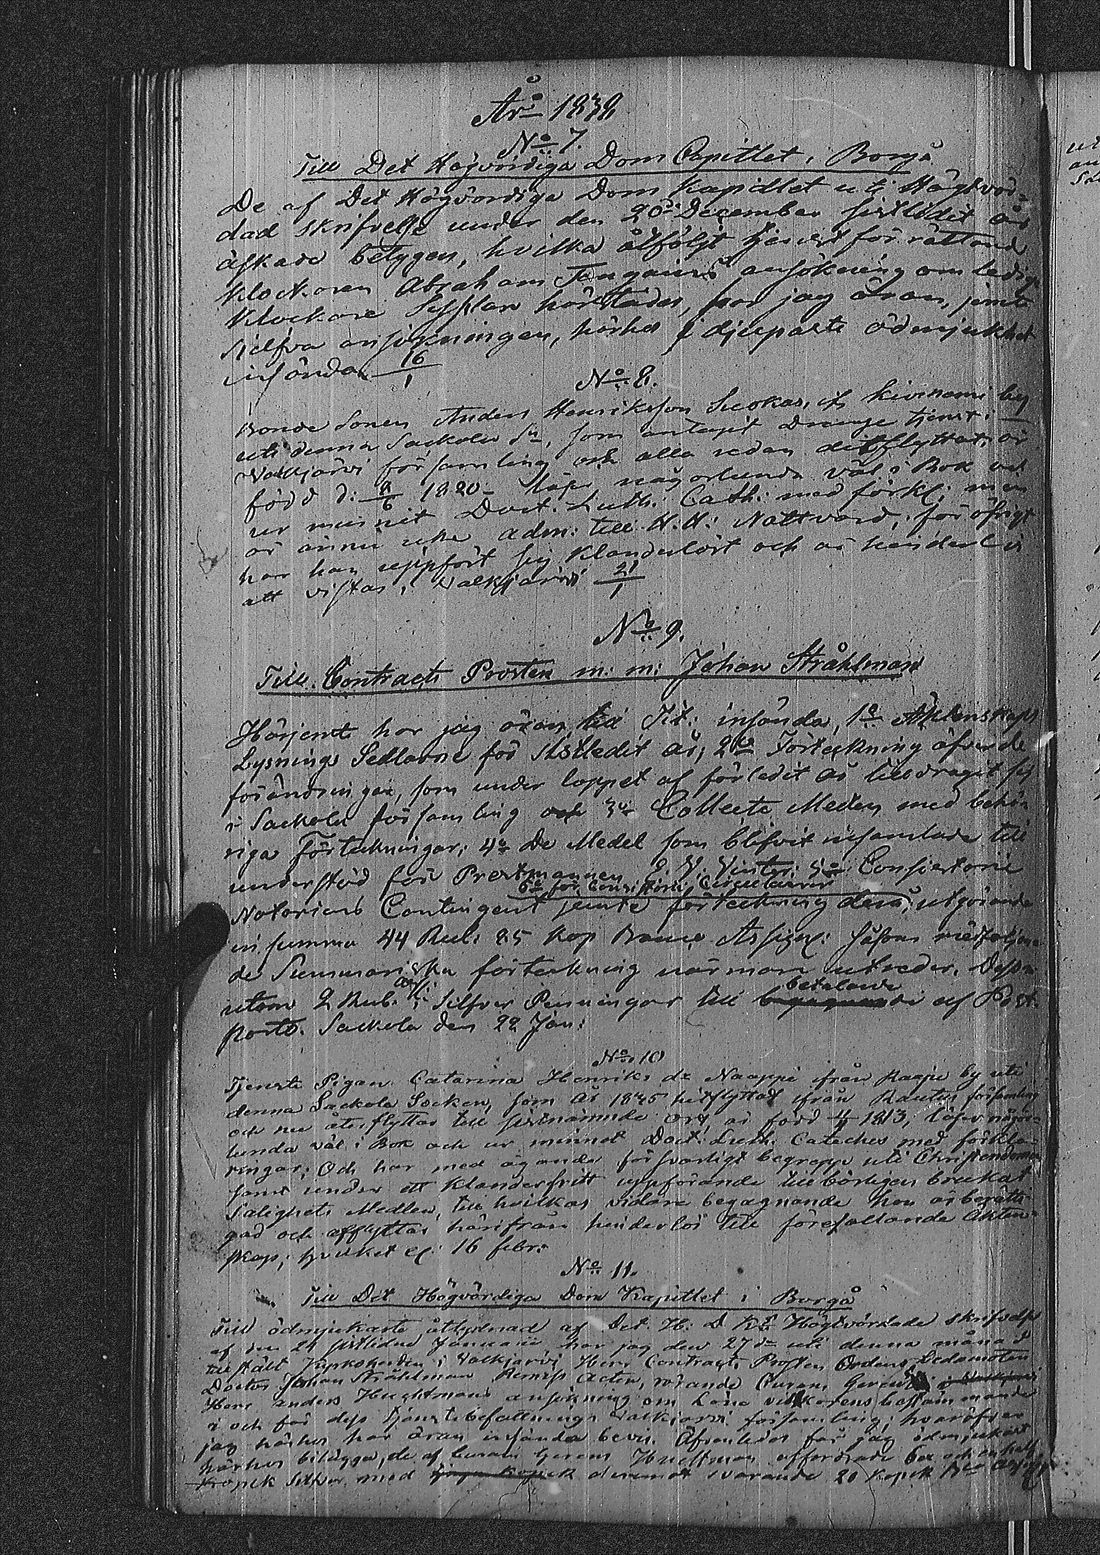 År 1838
No 7.
Till Det Högvördiga Dom Capitlet i Borgå
De af Det Högvördiga Dom Kapitlet uti Högtvör-
dad skrifvelse under den 20de December sistlidit år
äskade betygen, hvilka åtföljt tjenstförrättande
Klockaren Abraham ansökning om lediga
Klockare Sysslan härstädes, har jag äran, jemte
sielfva ansökningen, härhos ödmjukast
insända 16/1
No 8.
Bonde Sonen Anders Henriksson ifr. Kiviniemi by
uti denna Sackola Sn, som antagit Dränge tjenst i
Walkjärvi församling och alla redan ditflyttat, är
född d: 8/6 1820 läser någorlunda väl i Bok och
ur minnet Doct. Luth. Cath: med förkl; men
är ännu icke adm: till H. H: Nattvard; för öfrigt
har han uppfört sig klanderlöst och är hinderlös
att vistas i Walkjärvi 21/1
No 9.
Till Contracts Prosten m: m: Johan Stråhlman
Härjemt har jag äran, till Tit: insända, 1o Äktenskaps
Lysnings Sedlarne för sistledit år; 2o Förteckning öfver de
förändringar, som under loppet af förledit år tilldragit sig
i Sackola församling och 3o Collecte Medlen med behö-
riga Förteckningar; 4o De Medel som blifvit insamlade till
understöd för Prestmannen 5o Consistorii
6o för Consistorii Circulairer
Notariens Contingent jemte förteckning deraf, utgörande
in summa 44 Rub: 85 kop Banco Assign: såsom medföljan-
de Summariska förteckning närmare utreder. Dess-
utom 2 Rub. Silfver Penningar till betalande af Post-
porto. Sackola den 22 Jan:
No 10
Tjenste Pigan Catarina Henriks dr Naappi från Haapa by uti
denna Sackola Socken, som år 1835 hitflyttat ifrån Rautus församling
och nu återflyttar till sistnämnde ort, är född 1813, läser någor-
lunda väl i Bok och ur minnet Doct: Luth. Cateches med förkla-
ringar; Och har med ägande försvarligt begrepp uti Christendomen
samt under ett klanderfritt uppförande tillbörligen brukat
Salighets Medlen, till hvilkas vidare begagnande hon är berätti-
gad och afflyttar härifrån hinderlös till förefallande Äkten-
skap; hvilket 16 febr:
No 11.
Till Det Högvördiga Dom Kapitlet i Borgå
Till ödmjukaste åtlydnad af Det H: D. K:s Högtvördade skrifvelse
af den 24 sistliden Januarii har jag den 27de uti denna månad
tillstält Kyrkoherden i Walkjärvi Herr Contracts Prosten Ordens Ledamoten
Doctor Johan Stråhlman Remiss Acten, rörande Curam Gerens
Herr Anders ansökning om
å och för dess tjenstebefattning i Walkjärvi församling; hvaröfver
jag härhos har äran insända bevis. Äfvenledes får jag ödmjukast
härhos bilägga, de af Curam Gerens afförderade och en half
Kopek Silfver med deremot svarande 20 kopek Bco Assign